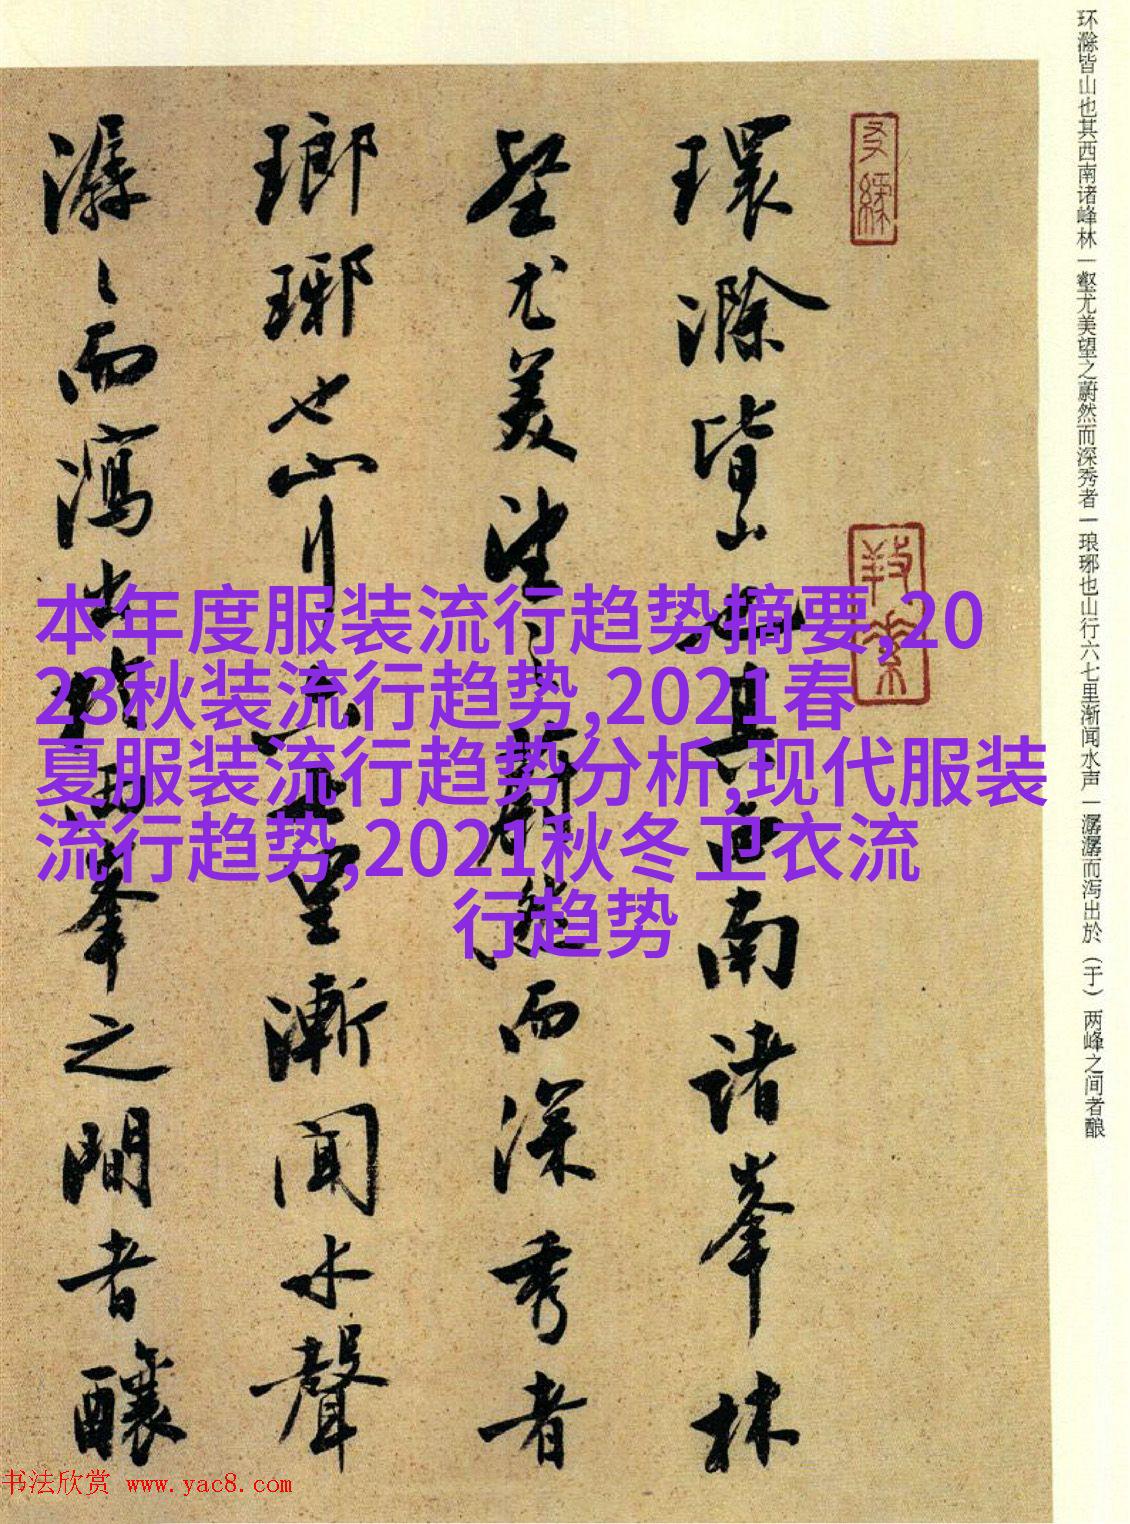 环滁皆山也其西南诸峰林一壑尤美望之蔚然而深秀者一琅琊也山行六七里渐闻水声一潺潺而泻出於（于）两峰之间者酿
環滁皆山也其西南諸峯林
壑尤美望之蔚然而深秀者
瑯琊也山行六七里漸聞水聲
潺々而瀉出於兩峯之間者釀
本年度服装流行趋势摘要,20
23秋装流行趋势,2021春
夏服装流行趋势分析,现代服装
流行趋势,2021秋冬卫衣流
行趋势
书法欣赏 www.yac8.com